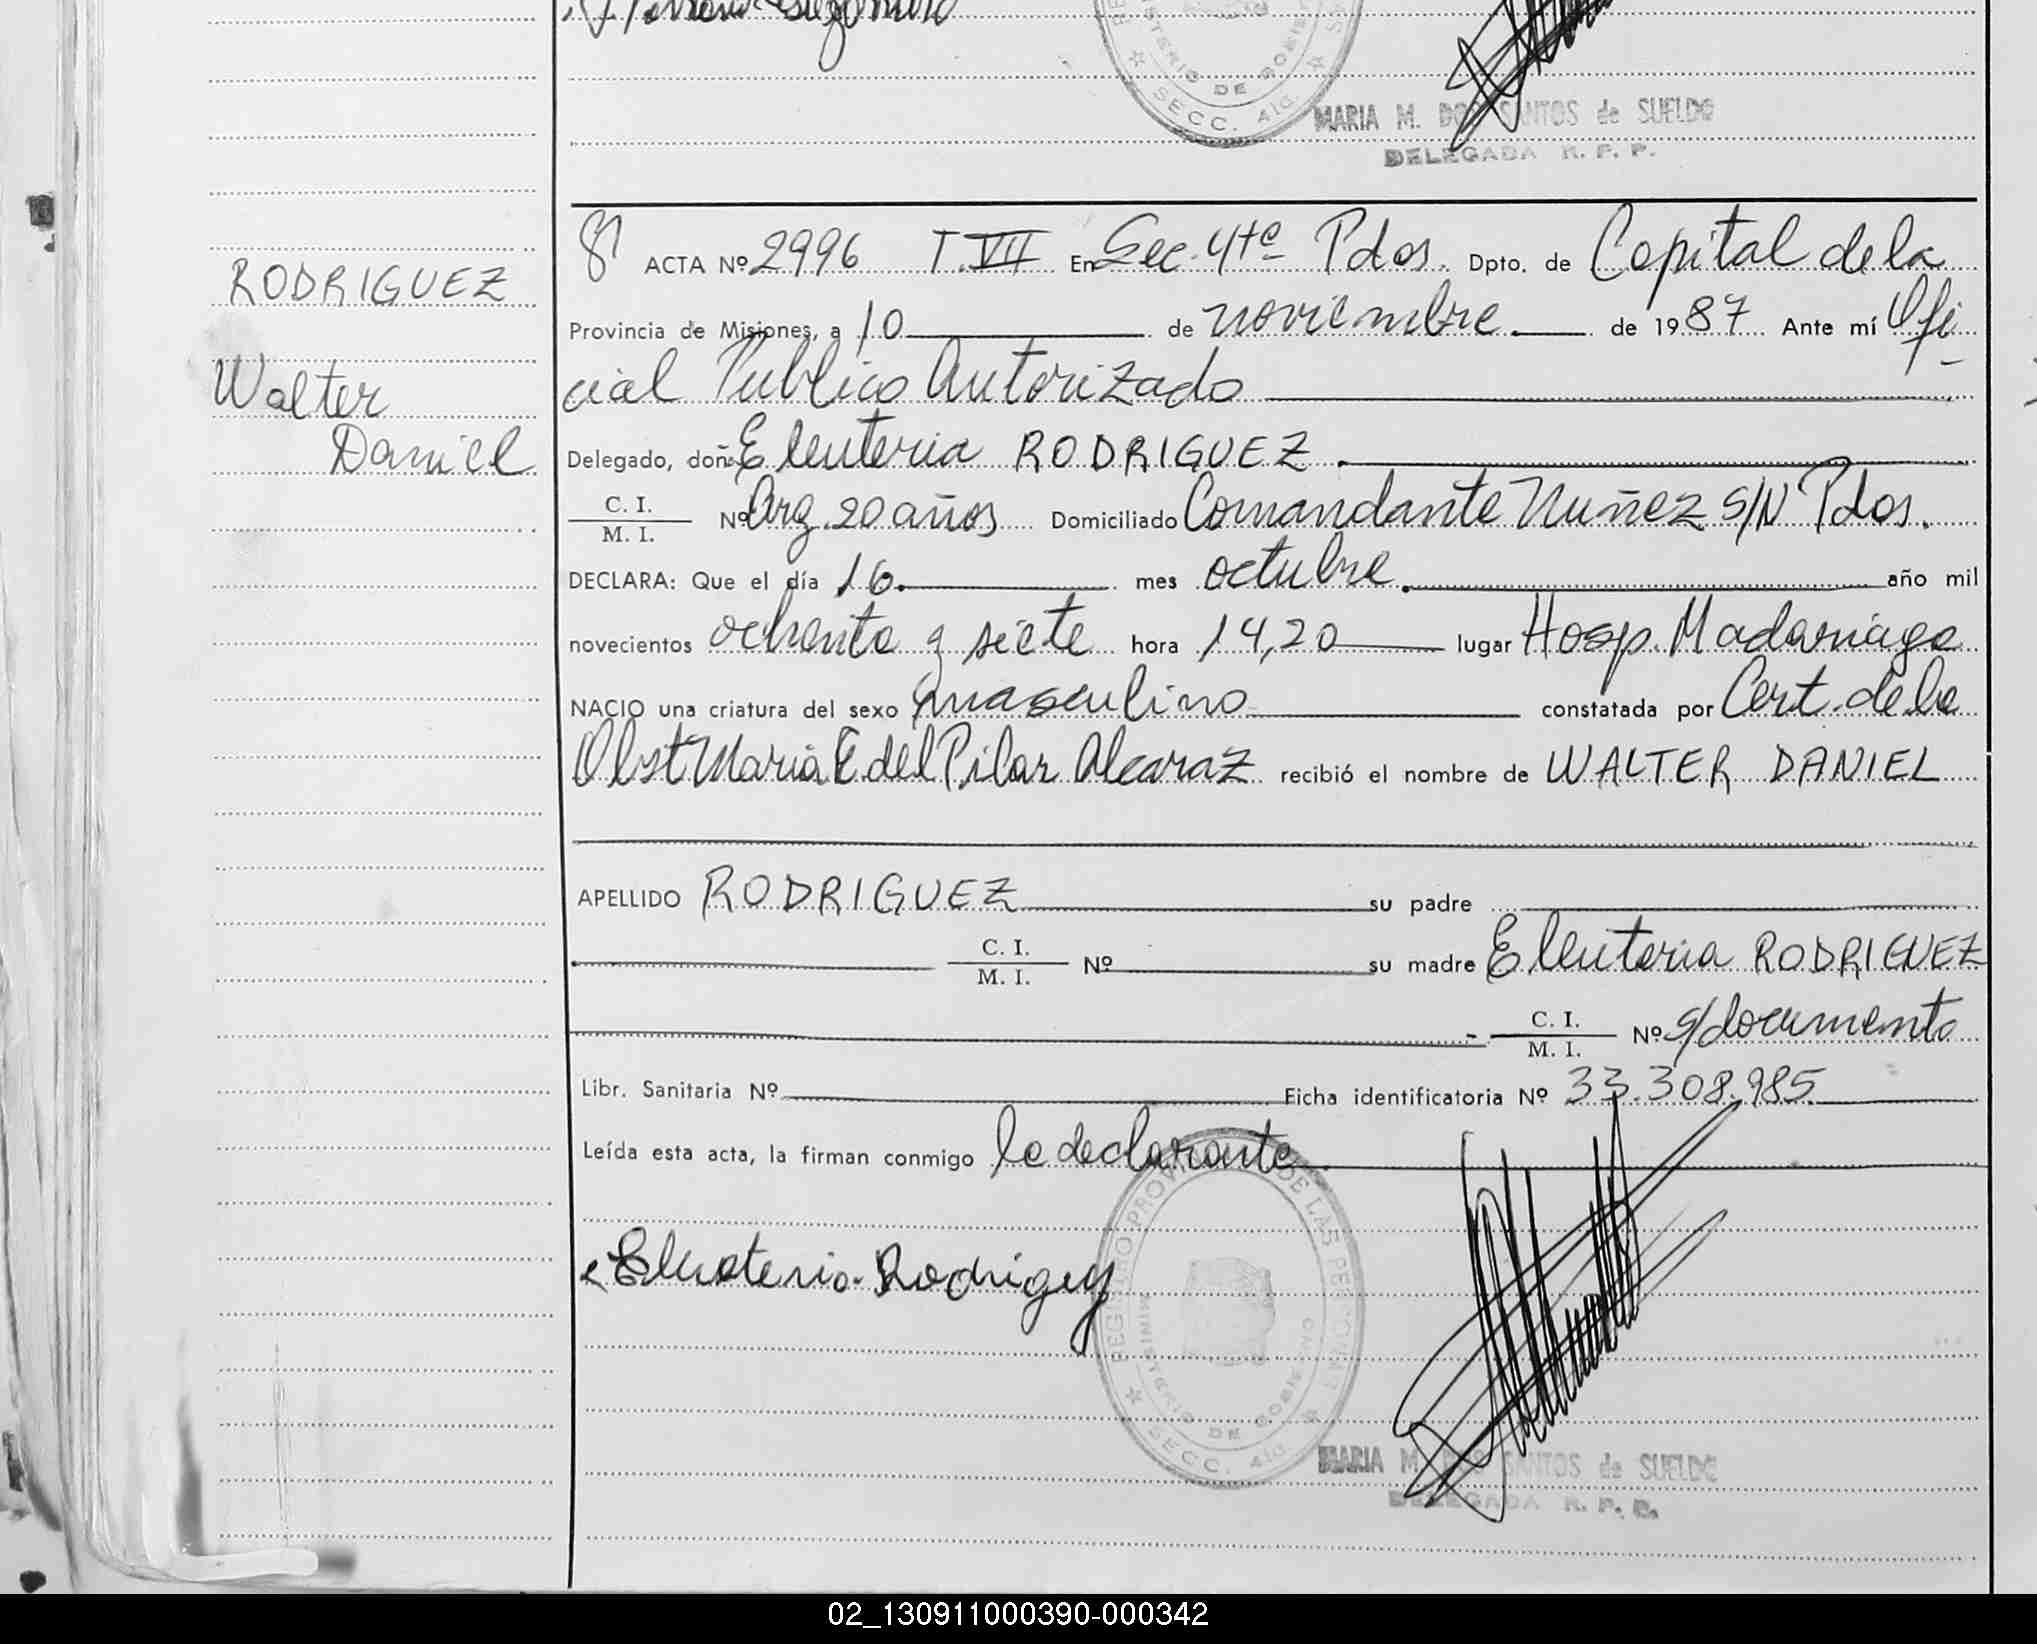 MINISTERIO DE GOBIE
SECC. 4ta.
MARIA M. DOS SANTOS de SUELDO
DELEGADA R. P. P.
RODRIGUEZ
Walter
Daniel
ACTA Nº 2996 T. VII En Sec. 4ta Pdas. Dpto. de Capital de la
Provincia de Misiones, a 10 de noviembre. de 1987 Ante mí Ofi
cial Publico Autorizado
Delegado, doña Eleuteria RODRIGUEZ.
C. I.
M. I. Nº Arg. 20 años Domiciliado Comandante Nuñez S/N Pdas.
DECLARA: Que el día 16. mes octubre. año mil
novecientos ochenta y siete hora 14,20 lugar Hosp. Madariaga
NACIO una criatura del sexo masculino constatada por Cert. de la
Obst Maria E del Pilar Alcaraz recibió el nombre de WALTER DANIEL
APELLIDO RODRIGUEZ su padre
C. I.
M. I. Nº su madre Eleuteria RODRIGUEZ
C. I.
M. I. Nº s/documento
Libr. Sanitaria Nº Ficha identificatoria Nº 33.308.985
Leída esta acta, la firman conmigo la declarante
REGISTRO PROV DE LAS PERSONAS
Eleuteria Rodriguez
MINISTERIO DE GOBIE
SECC. 4ta.
MARIA M. DOS SANTOS de SUELDO
DELEGADA R. P. P.
02_130911000390-000342